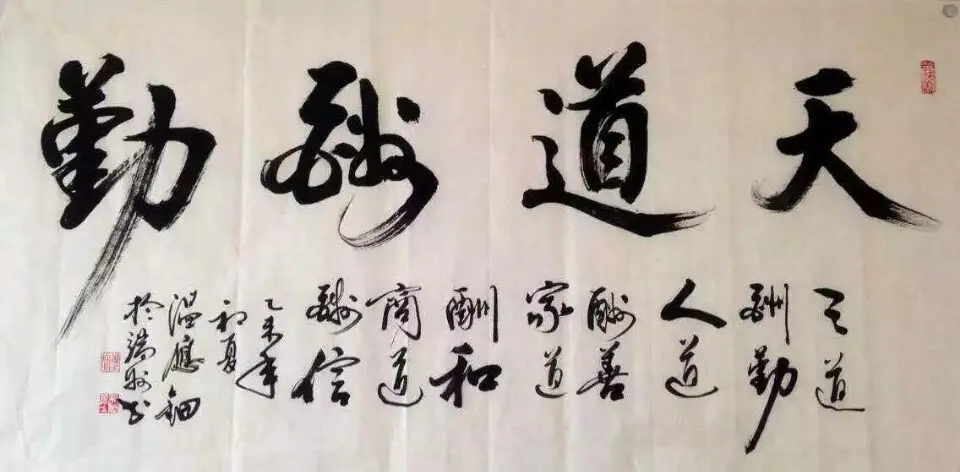 天道酬勤
天道
酬勤
人道
酬善
家道
酬和
商道
酬信
乙未年
初夏
温應
於端州书